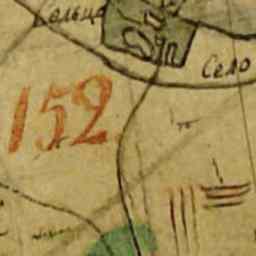 Сельцо
Село
152